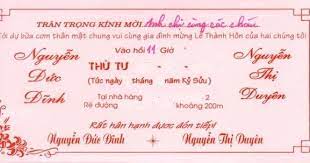 TRÂN TRỌNG KÍNH MỜI Anh chị cùng các cháu
Tới dự bữa cơm thân mật chung vui cùng gia đình mừng Lễ Thành Hôn của hai chúng tôi
Vào hồi 11 Giờ
Nguyễn THỨ TƯ Nguyễn
Đức (Tức ngày tháng năm Kỷ Sửu) Thị
Đĩnh Tại nhà hàng 2 Duyên
Rẽ đường khoảng 200m
Rất hân hạnh được đón tiếp!
Nguyễn Đức Đĩnh Nguyễn Thị Duyên